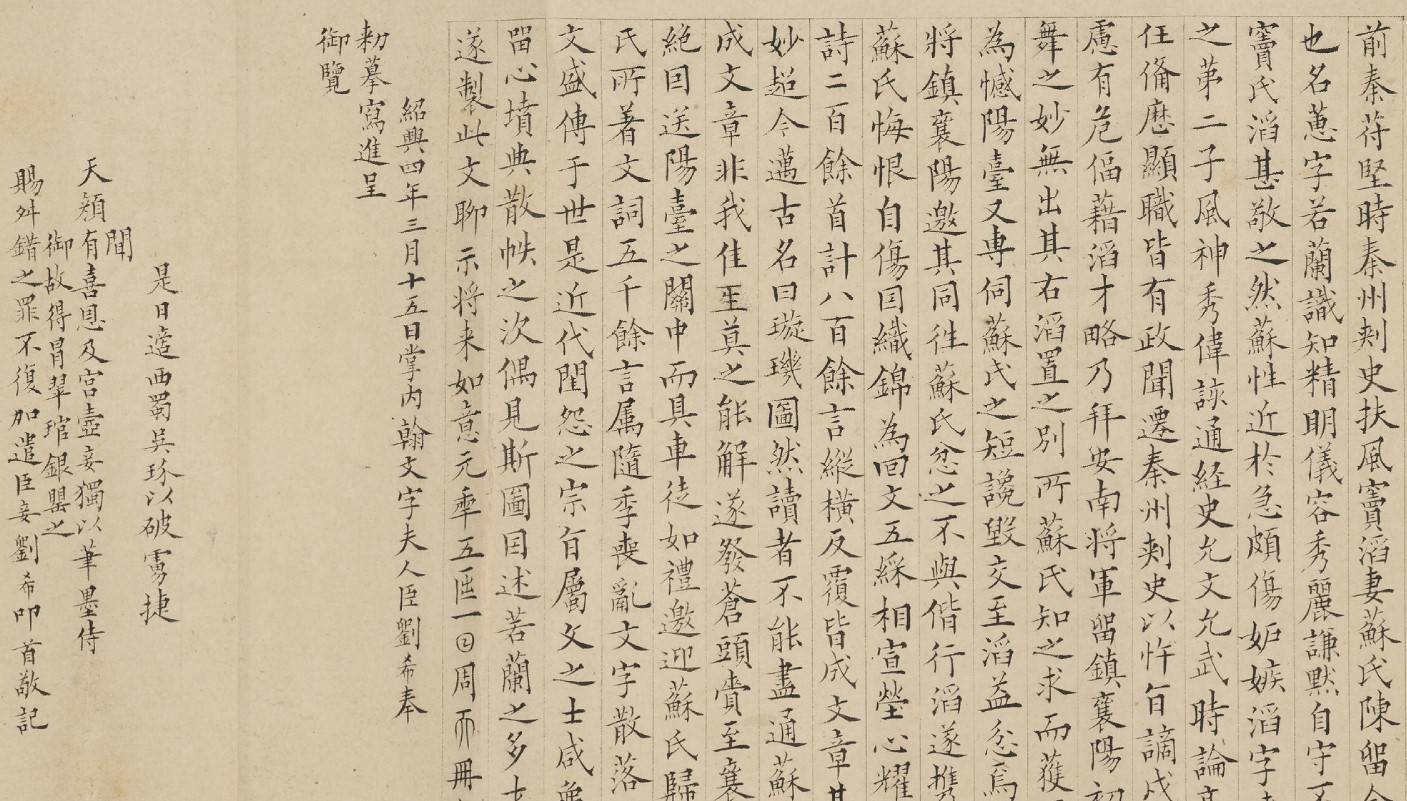 前秦苻堅時秦州刾史扶風竇滔妻蘇氏陳畱令
也名蕙字若蘭識知精明儀容秀麗謙黙自守不
竇氏滔甚敬之然蘇性近於急頗傷妒嫉滔字
之苐二子風神秀偉詼通経史允文允武時論高
任俻歴顯職皆有政聞遷秦州刾史以忤旨謫戍
慮有危偪藉滔才略乃拜安南将軍畱鎮襄陽初
舞之妙無出其右滔置之别所蘇氏知之求而獲
為憾陽臺又専伺蘇氏之短讒毀交至滔益忿焉
将鎮襄陽邀其同徃蘇氏忿之不與偕行滔遂携
蘇氏悔恨自傷囙織錦為回文五綵相宣瑩心耀
詩二百餘首計八百餘言縱橫反覆皆成文章其
妙超今邁古名曰璇璣圖然讀者不能盡通蘇
成文章非我佳𤯔莫之能解遂發蒼頭賫至襄
絶囙送陽臺之關中而具車徒如禮邀迎蘇氏歸
氏所著文詞五千餘言属隨季喪亂文字散落
文盛傳于世是近代閨怨之宗旨屬文之士咸龜
畱心墳典散帙之次偶見斯圖囙述若蘭之多才
遂製此文聊示将来如意元𠡦五𠥱一𡆠周而冊
紹興四年三月十五日掌内翰文字夫人臣劉希奉
勑摹寫進呈
御覽
是日適西蜀吳玠以破虜捷
聞
天顏有喜恩及宫壼妾獨以筆墨侍
御故得冐翠琯銀罌之
賜舛錯之罪不復加遣臣妾劉希叩首敬記